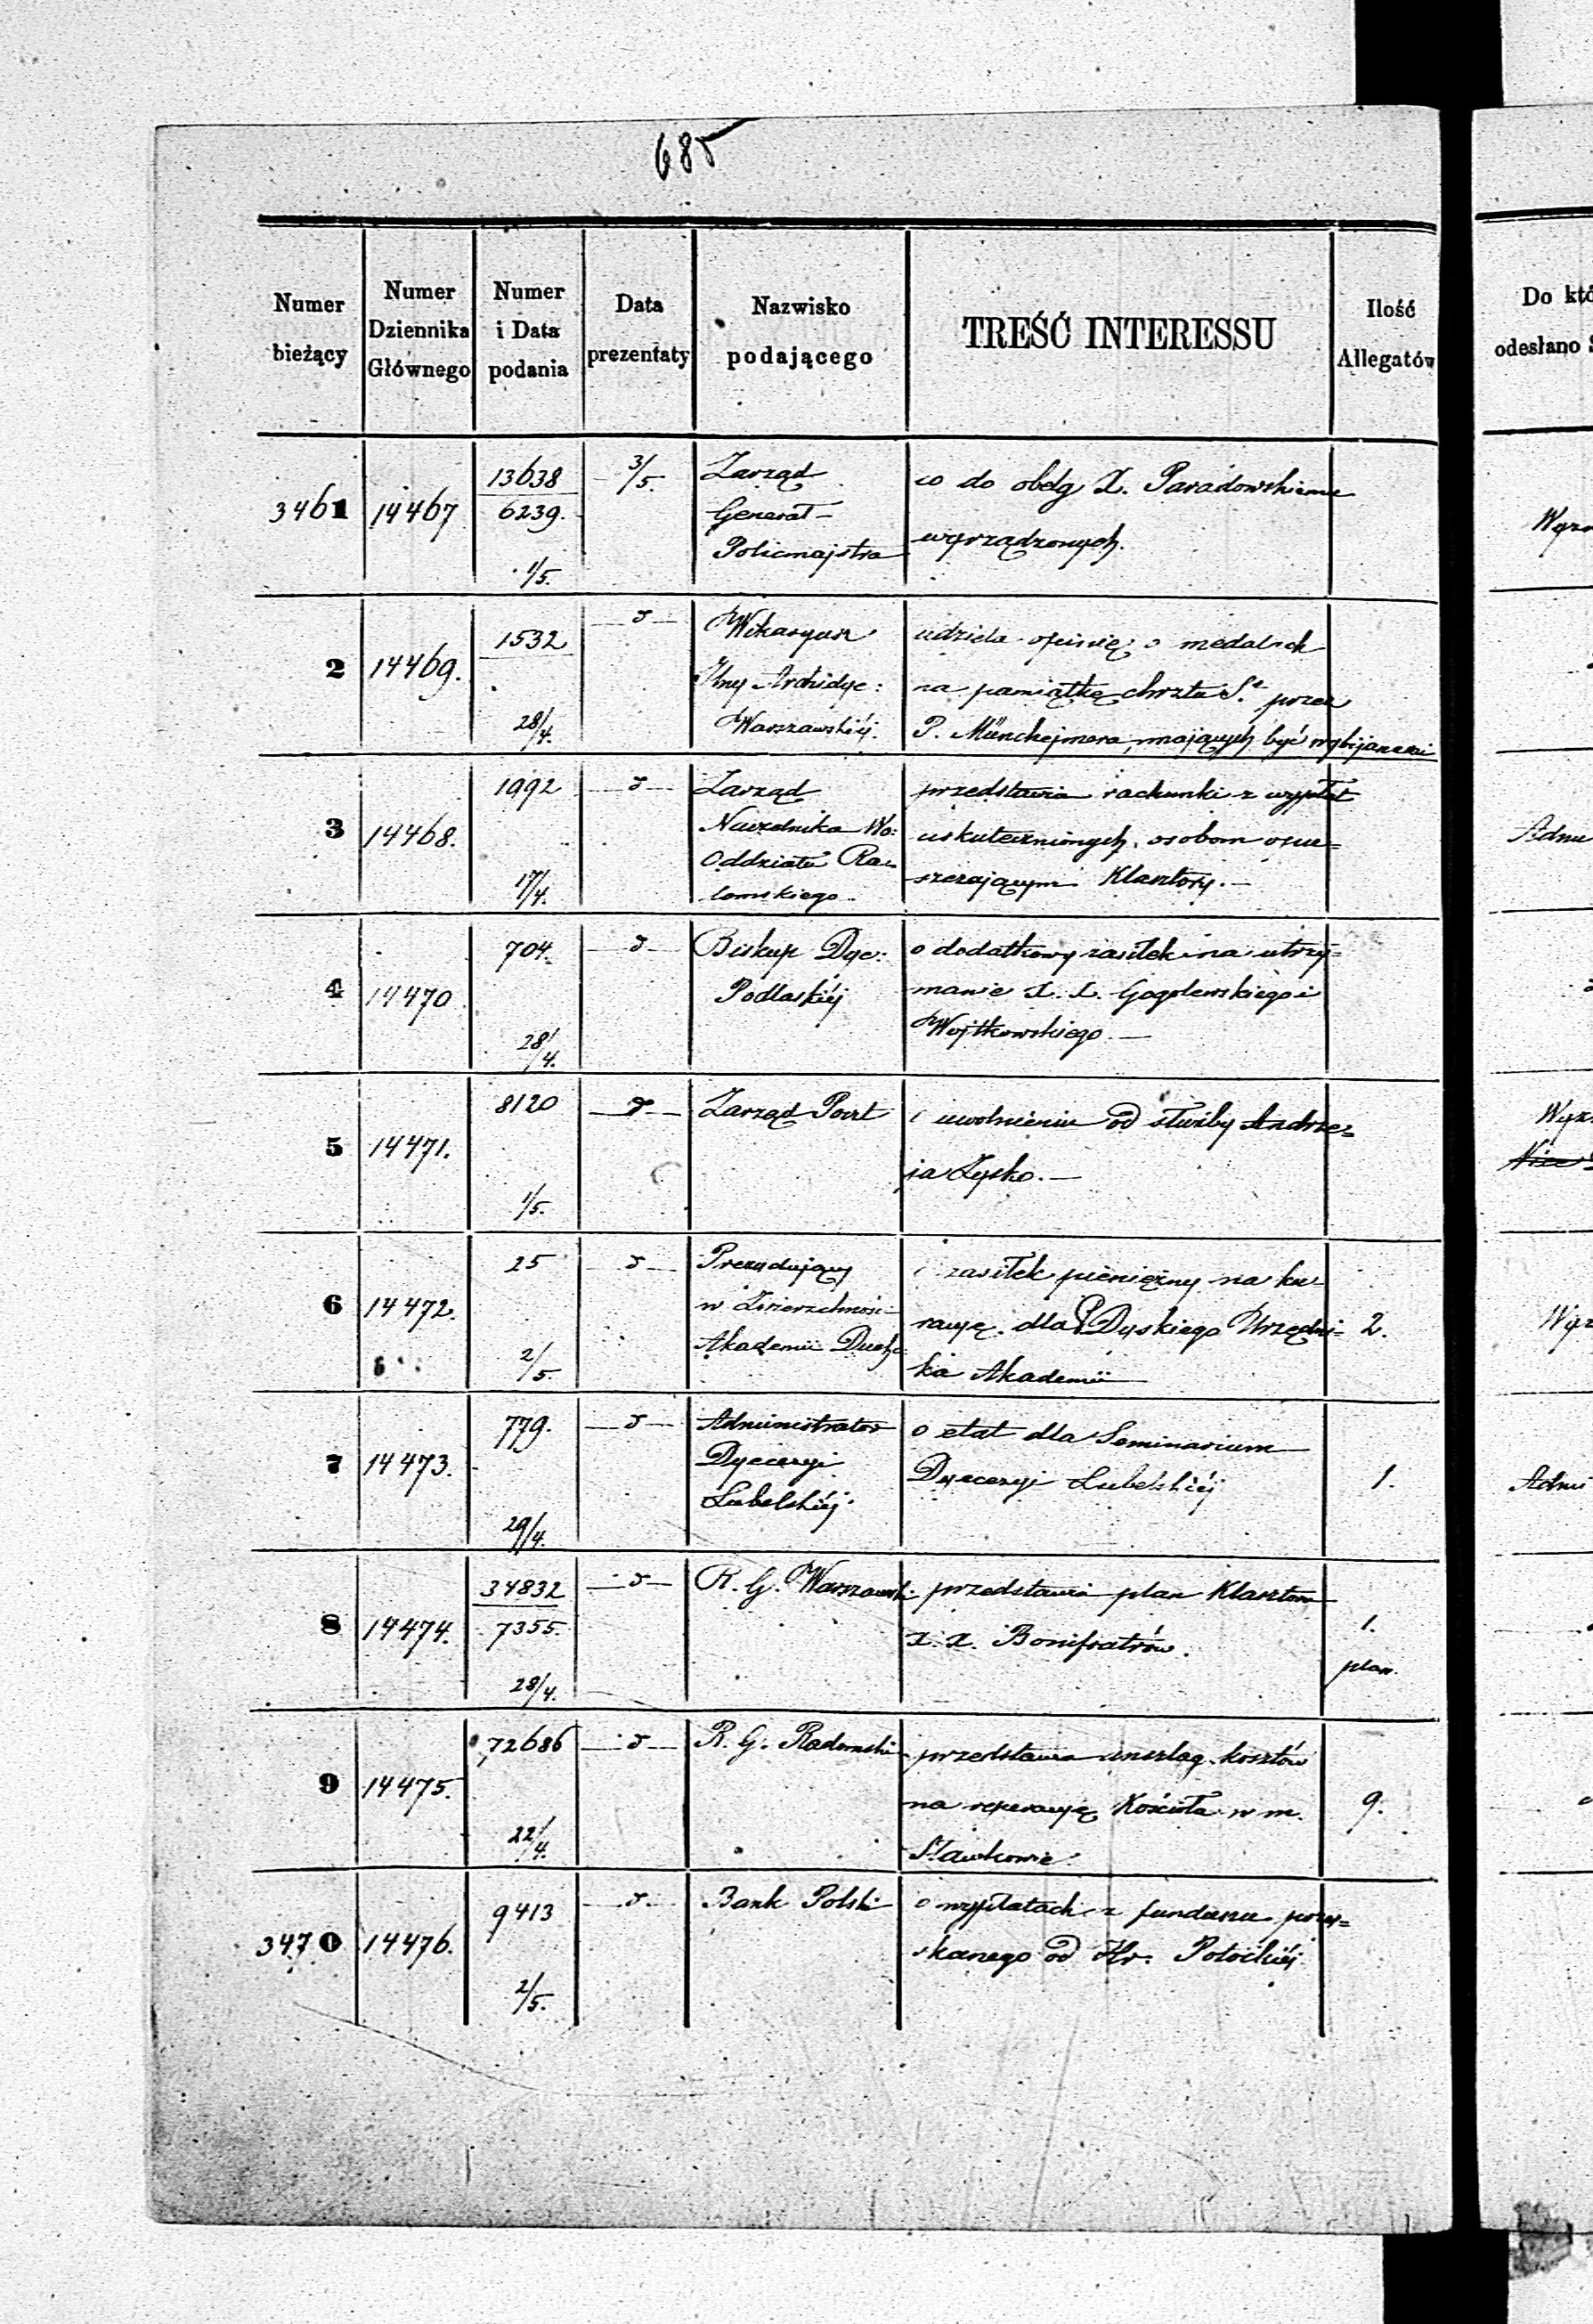 685
Numer bieżący
Numer Dziennika Głównego
Numer i Data podania
Data prezentaty
Nazwisko podającego
TREŚĆ INTERESSU
Ilość Allegatów
Do któ
odesłano S
3461 14467 13638 3/5. Zarząd co do obelg X. Paradowskiemu
6239. Generał- wyrządzonych.
1/5. Policmajstra
2 14469. 1532 d Wikaryusz udziela opinię o medalach
Archidyec: na pamiątkę chrztu Sgo przez
28/4. Warszawskiéj. P. Münchejmera, mających być wybijanemi
3 14468. 1992 d Zarząd przedstawia rachunki z wypłat
Naczelnika Wo: uskutecznionych osobom opu=
Oddziału Ra=
17/4. domskiego szczającym Klasztory.—
4 14470 704. d Biskup Dyec: o dodatkowy zasiłek na utrzy=
Podlaskiéj manie X. X. Gogolewskiego i
28/4. Wojtkowskiego.—
5 14471. 8120 d Zarząd Poczt o uwolnieniu od służby Andrze=
1/5. ja Łysko.—
6 14472. 25 d Prezydujący o zasiłek pieniężny na ku=
w Zwierzchnośc: racyę dla P Dyskiego Urzędni= 2.
2/5. Akademii Duch: ka Akademii
7 14473. 779. d Administrator o etat dla Seminarium
Dyecezyi Dyecezyi Lubelskiéj 1.
29/4. Lubelskiéj.
8 14474. 34832 d R. G. Warszawski przedstawia plan Klasztoru
7355. X. X. Bonifratrów. 1.
28/4. plan.
9 14475. 72686 d R. G. Radomski przedstawia anszlag kosztów
na reperacyę Kościoła w m. 9.
22/4. Sławkowie.
3470 14476. 9413 d Bank Polski o wypłatach z funduszu pozy=
skanego od Hr. Potockiéj
2/5.